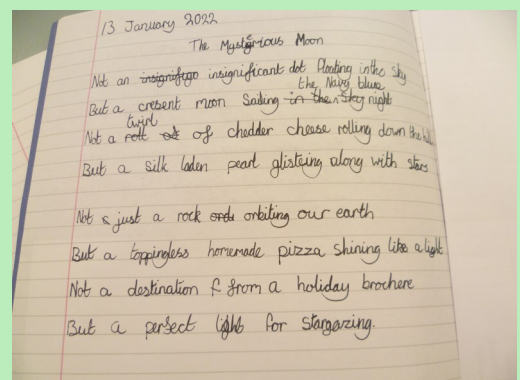 13 January 2022
The Mysterious Moon
Not an insignifign insignificant dot floating in the sky
the Navy blue
But a cresent moon Sailing in the Sky night
twirl
Not a roll of of chedder cheese rolling down the hill
But a silk laden pearl glisteing along with stars
Not a just a rock orbiting our earth
But a toppingless homemade pizza shining like a light
Not a destination f from a holiday brochere
But a perfect light for stargazing.